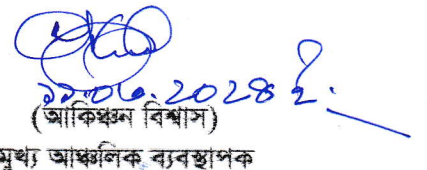 ২০২৪
(আকিঞ্চন বিশ্বাস)
মুখ্য আঞ্চলিক ব্যবস্থাপক